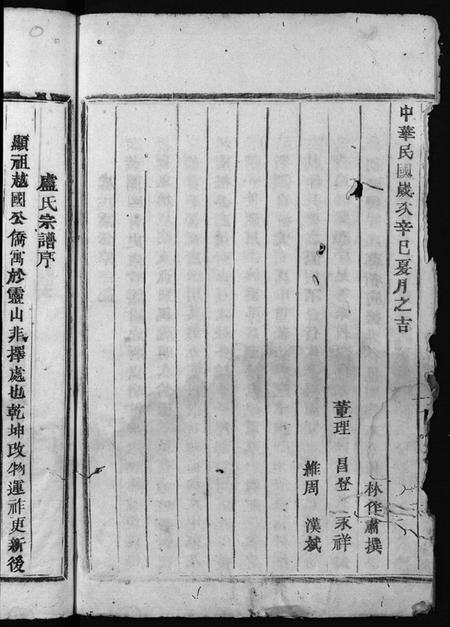 中華民國歲次辛巳夏月之吉
林作肅撰
董理 昌登 永祥
維周 漢斌
盧氏宗譜序
顯祖越國公僑寓於靈山非擇處也乾坤改物運祚更新後